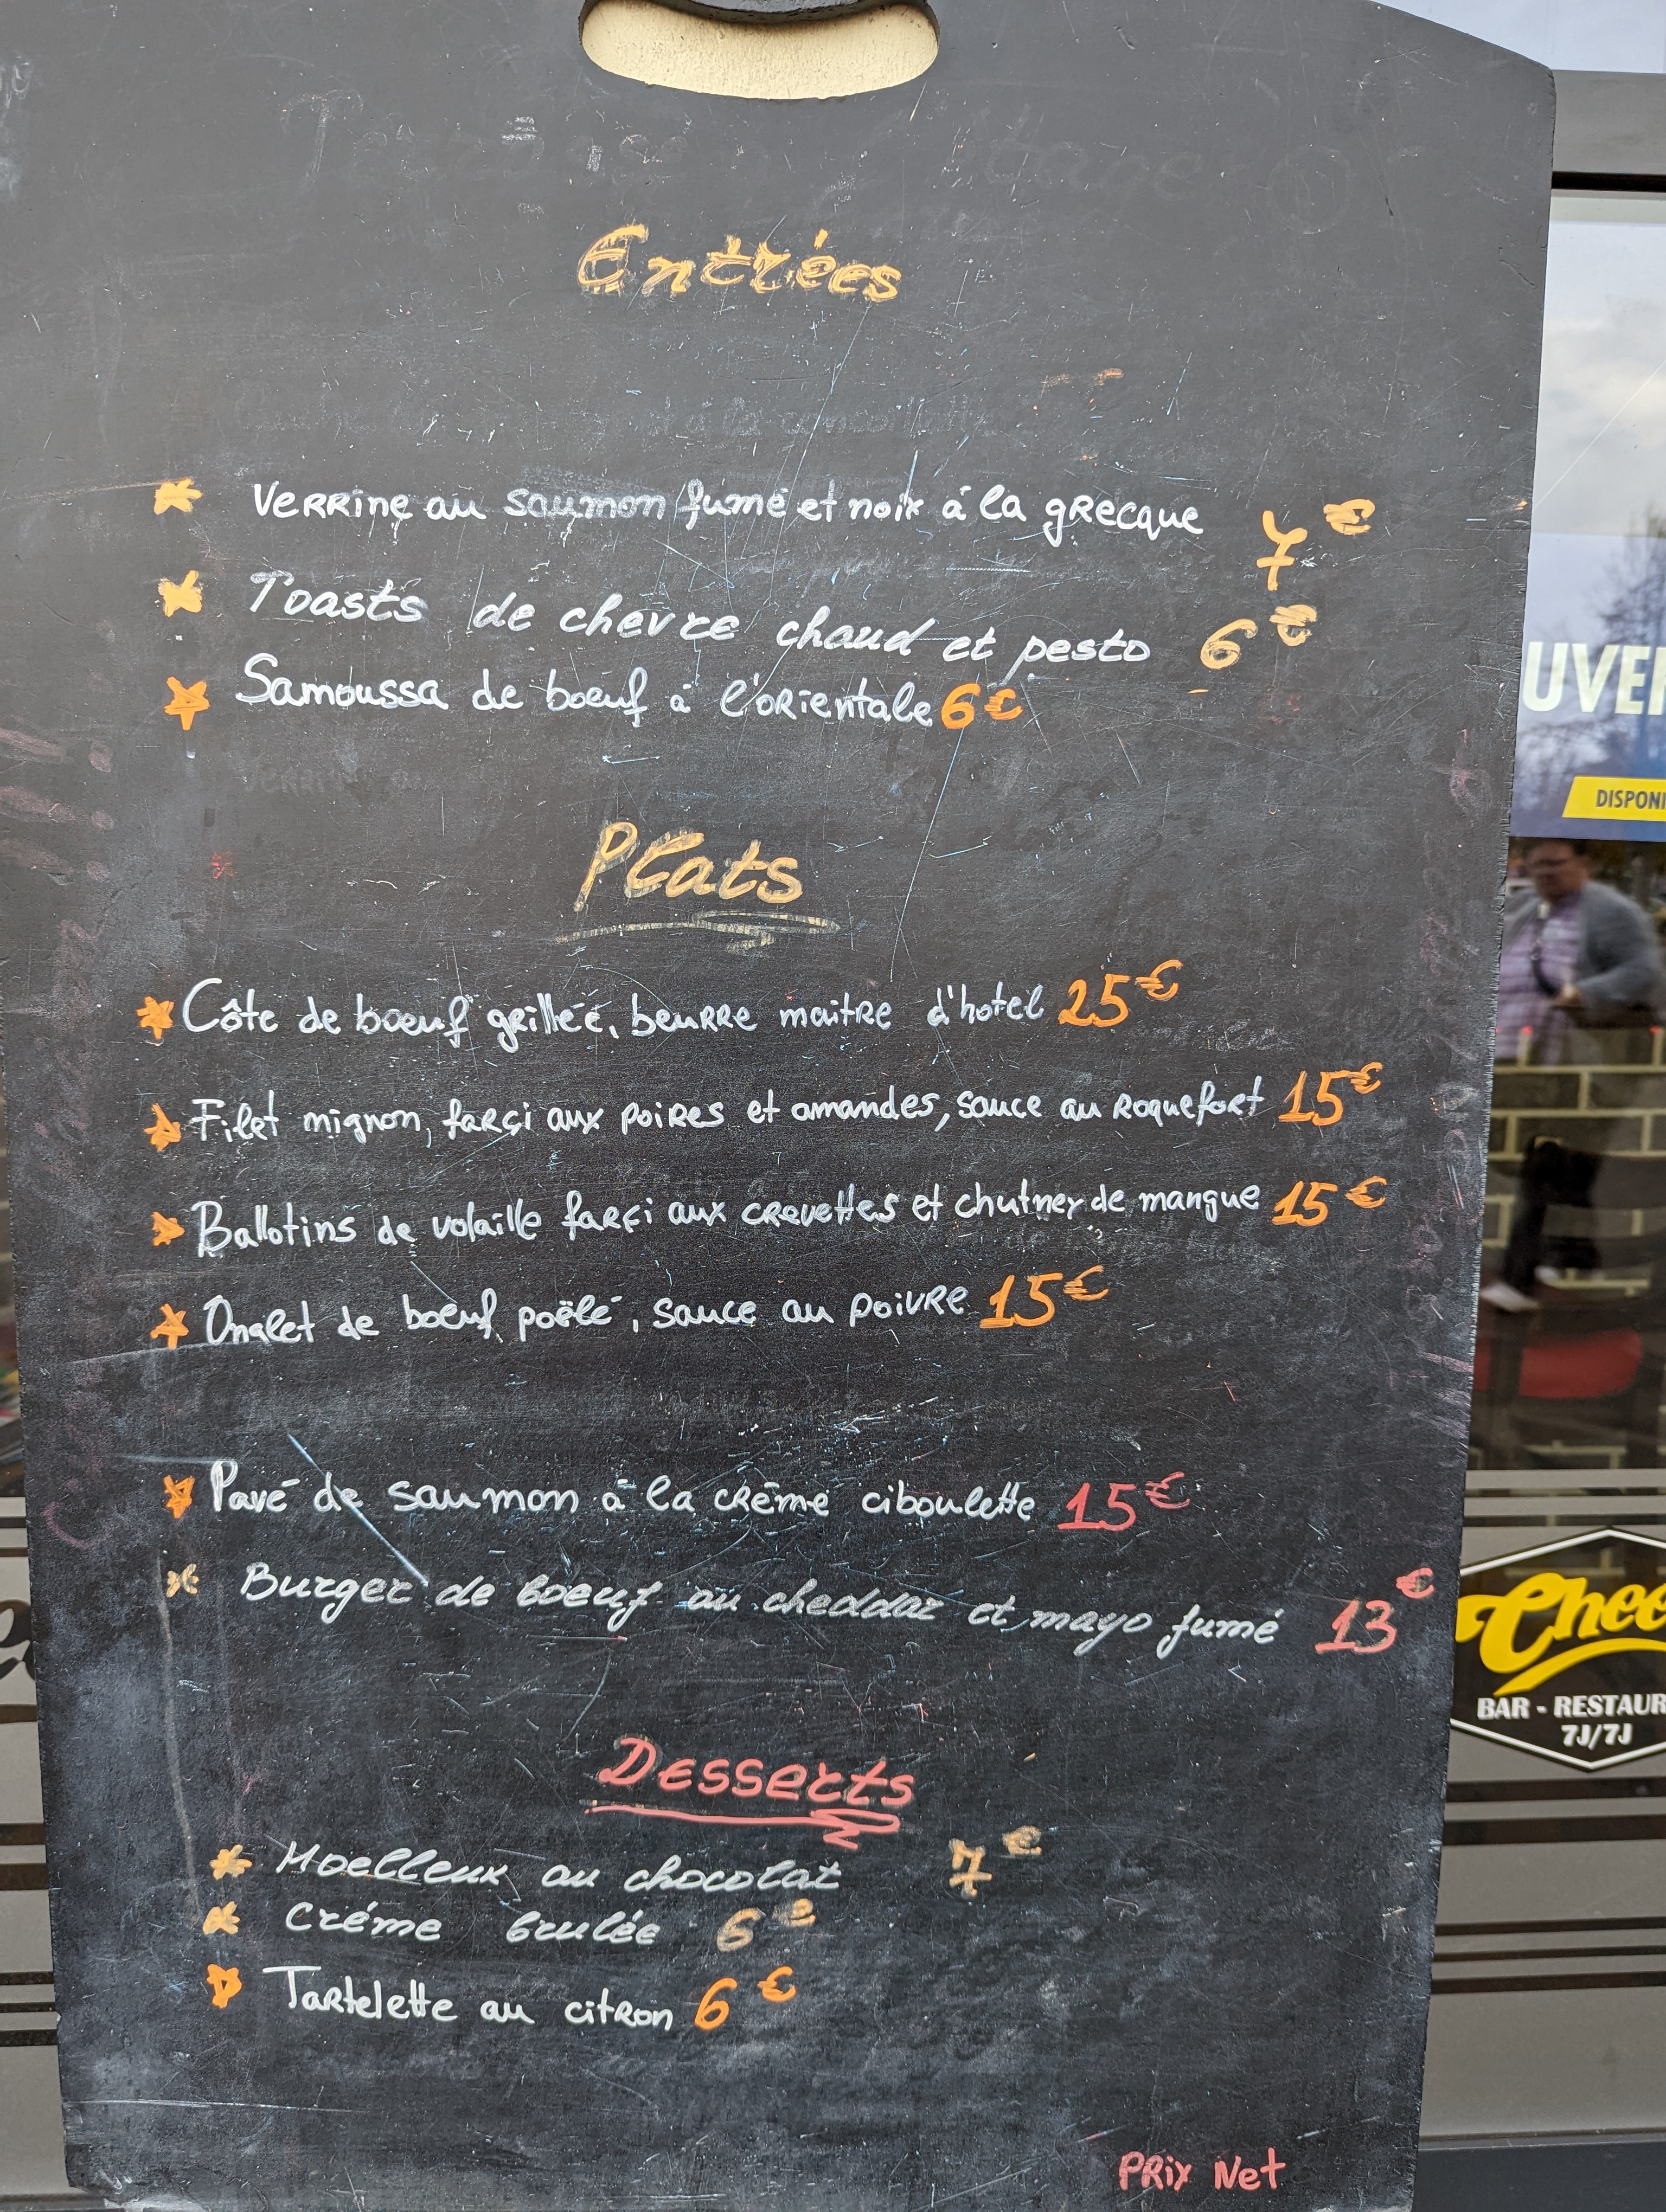 Entrées
Verrine au saumon fumé et noix à la grecque 7€
Toasts de chèvre chaud et pesto 6€
Samoussa de boeuf à l'orientale 6€
Plats
Côte de boeuf grillée, beurre maitre d'hotel 25€
Filet mignon, farçi aux poires et amandes, sauce au Roquefort 15€
Ballotins de volaille farçi aux crevettes et chutney de mangue 15€
Onglet de boeuf poëlé, sauce au poivre 15€
Pavé de saumon à la crème ciboulette 15€
Burger de boeuf au cheddar et mayo fumé 13€
Desserts
Moelleux au chocolat 7€
Créme brulée 6€
Tartelette au citron 6€
Prix Net
UVER
DISPONI
Chee
BAR - RESTAUR
7J/7J